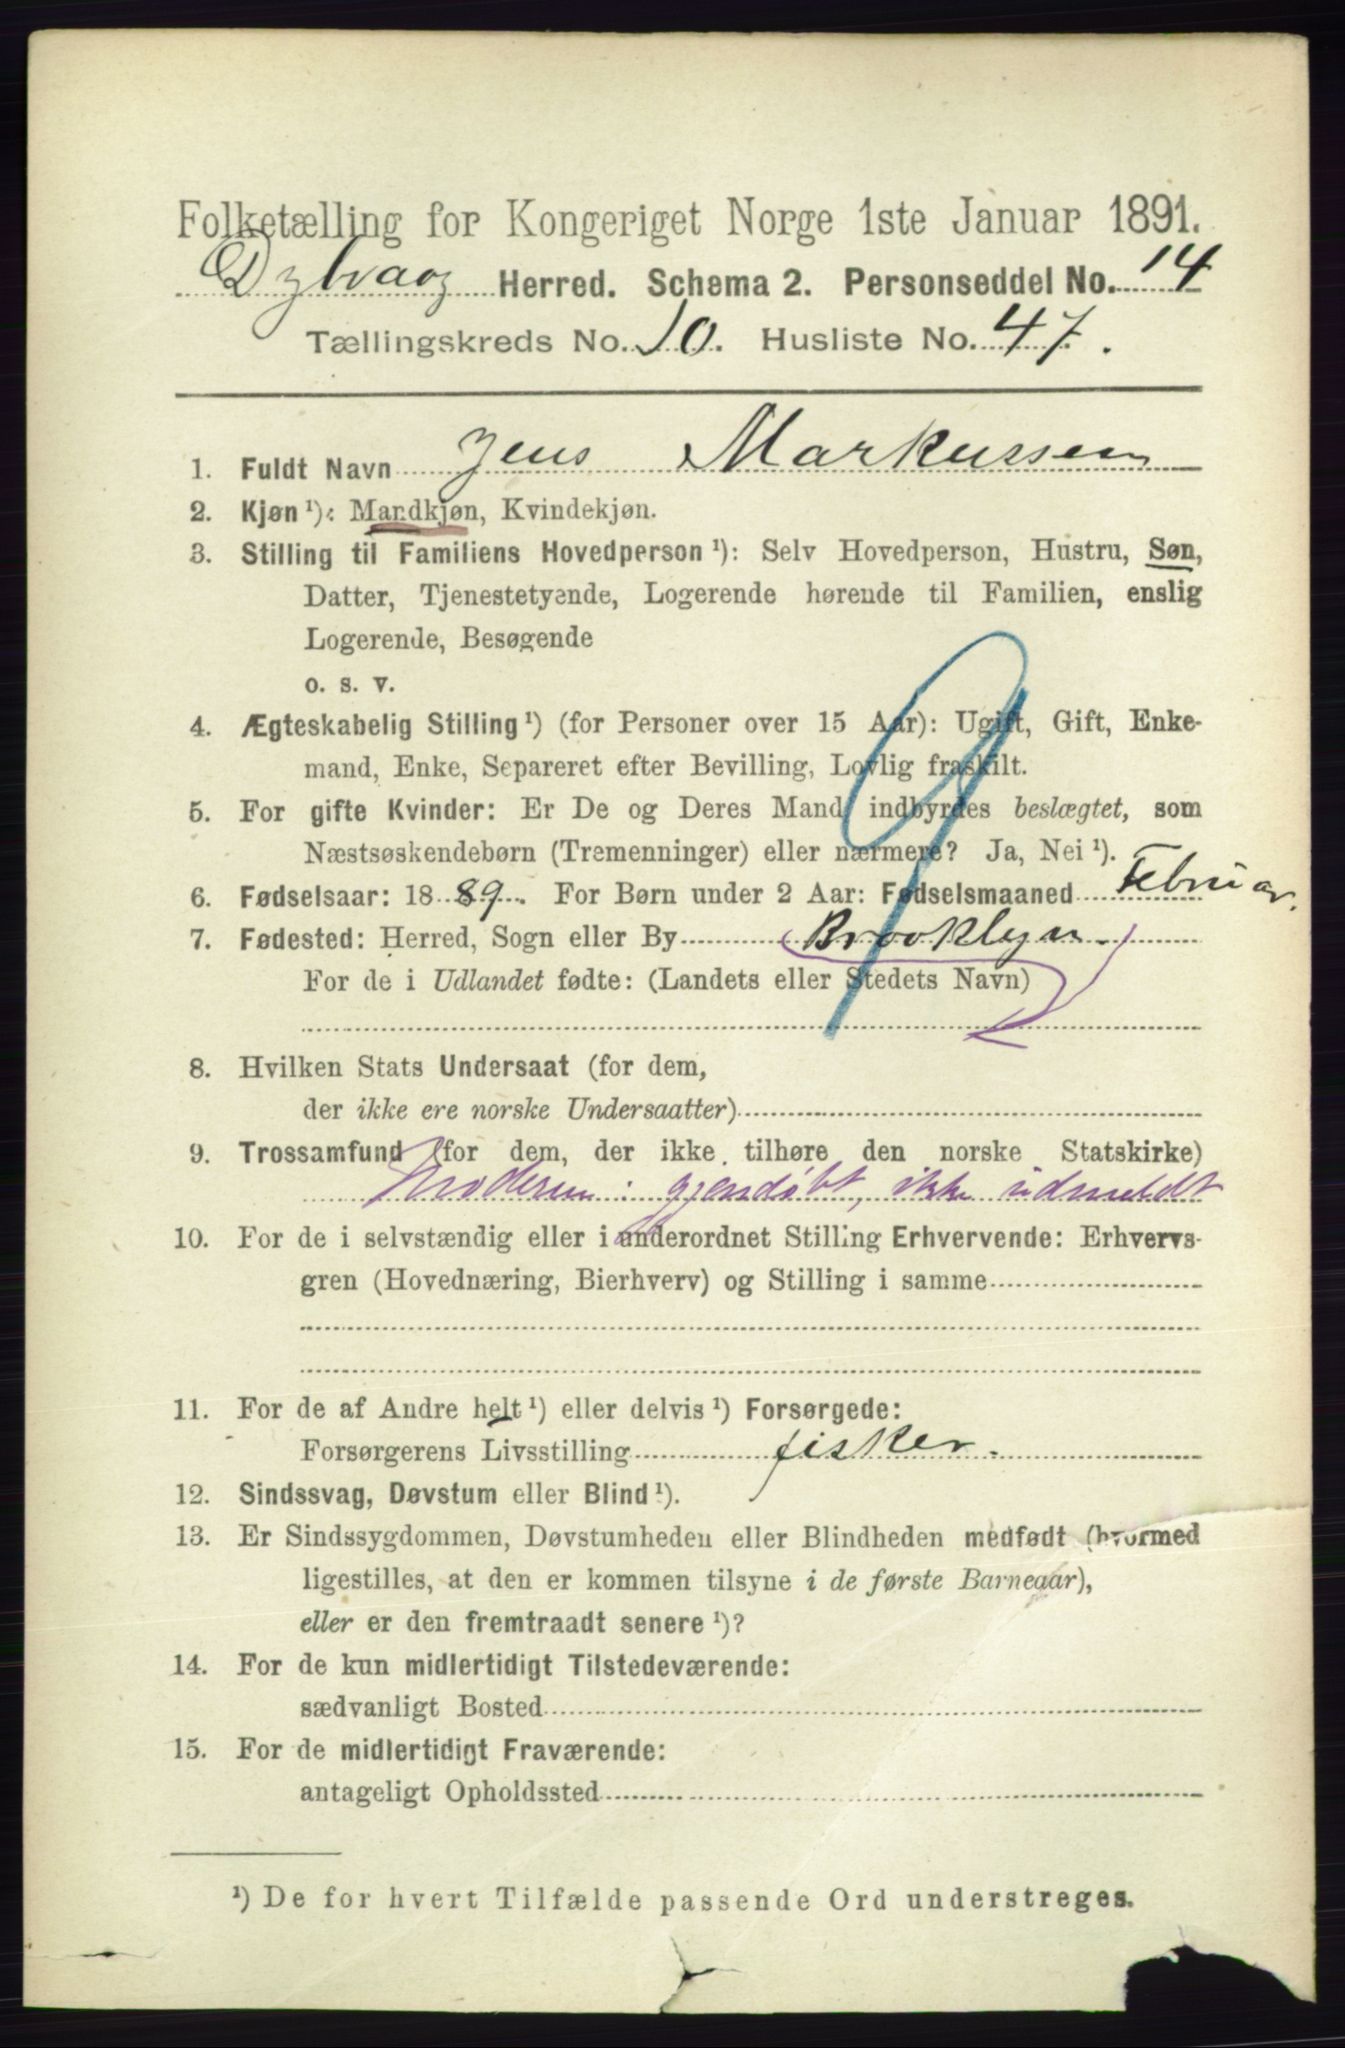 Folketælling for Kongeriget Norge 1ste Januar 1891.
Dybvaag Herred. Schema 2. Personseddel No. 14
Tællingskreds No. 10. Husliste No. 47.
1. Fuldt Navn Jens Markussen
2. Kjøn ¹): Mandkjøn, Kvindekjøn.
3. Stilling til Familiens Hovedperson ¹): Selv Hovedperson, Hustru, Søn,
Datter, Tjenestetyende, Logerende hørende til Familien, enslig
Logerende, Besøgende
o. s. v.
4. Ægteskabelig Stilling ¹) (for Personer over 15 Aar): Ugift, Gift, Enke-
mand, Enke, Separeret efter Bevilling, Lovlig fraskilt.
5. For gifte Kvinder: Er De og Deres Mand indbyrdes beslægtet, som
Næstsøskendebørn (Tremenninger) eller nærmere? Ja, Nei ¹).
6. Fødselsaar: 1889. For Børn under 2 Aar: Fødselsmaaned Februar.
7. Fødested: Herred, Sogn eller By Brooklyn.
For de i Udlandet fødte: (Landets eller Stedets Navn)
8. Hvilken Stats Undersaat (for dem,
der ikke ere norske Undersaatter)
9. Trossamfund (for dem, der ikke tilhøre den norske Statskirke)
Moderen: gjendøbt, ikke udmeldt
10. For de i selvstændig eller i underordnet Stilling Erhvervende: Erhvervs-
gren (Hovednæring, Bierhverv) og Stilling i samme
11. For de af Andre helt ¹) eller delvis ¹) Forsørgede:
Forsørgerens Livsstilling fisker.
12. Sindssvag, Døvstum eller Blind ¹).
13. Er Sindssygdommen, Døvstumheden eller Blindheden medfødt (hvormed
ligestilles, at den er kommen tilsyne i de første Barneaar),
eller er den fremtraadt senere ¹)?
14. For de kun midlertidigt Tilstedeværende:
sædvanligt Bosted
15. For de midlertidigt Fraværende:
antageligt Opholdssted
¹) De for hvert Tilfælde passende Ord understreges.